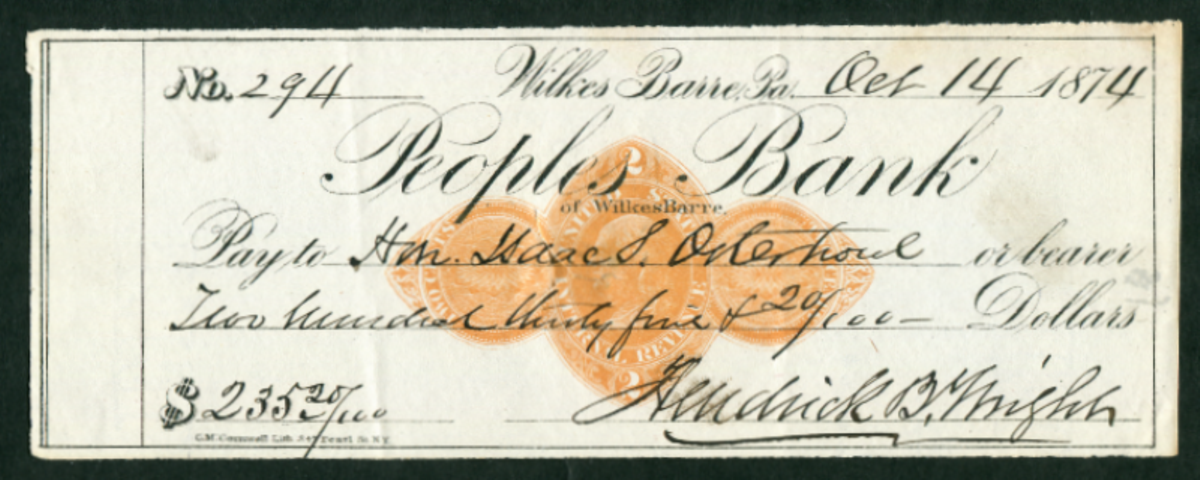 No. 294 Wilkes Barre, Pa. Oct 14 1874
Peoples Bank
of WilkesBarre.
Pay to Hon. Isaac S. Osterhout or bearer
Two hundred thirty five & 20/100 — Dollars
$ 235 20/100
Hendrick B. Wright
2
UNITED
INTERNAL REVENUE
2